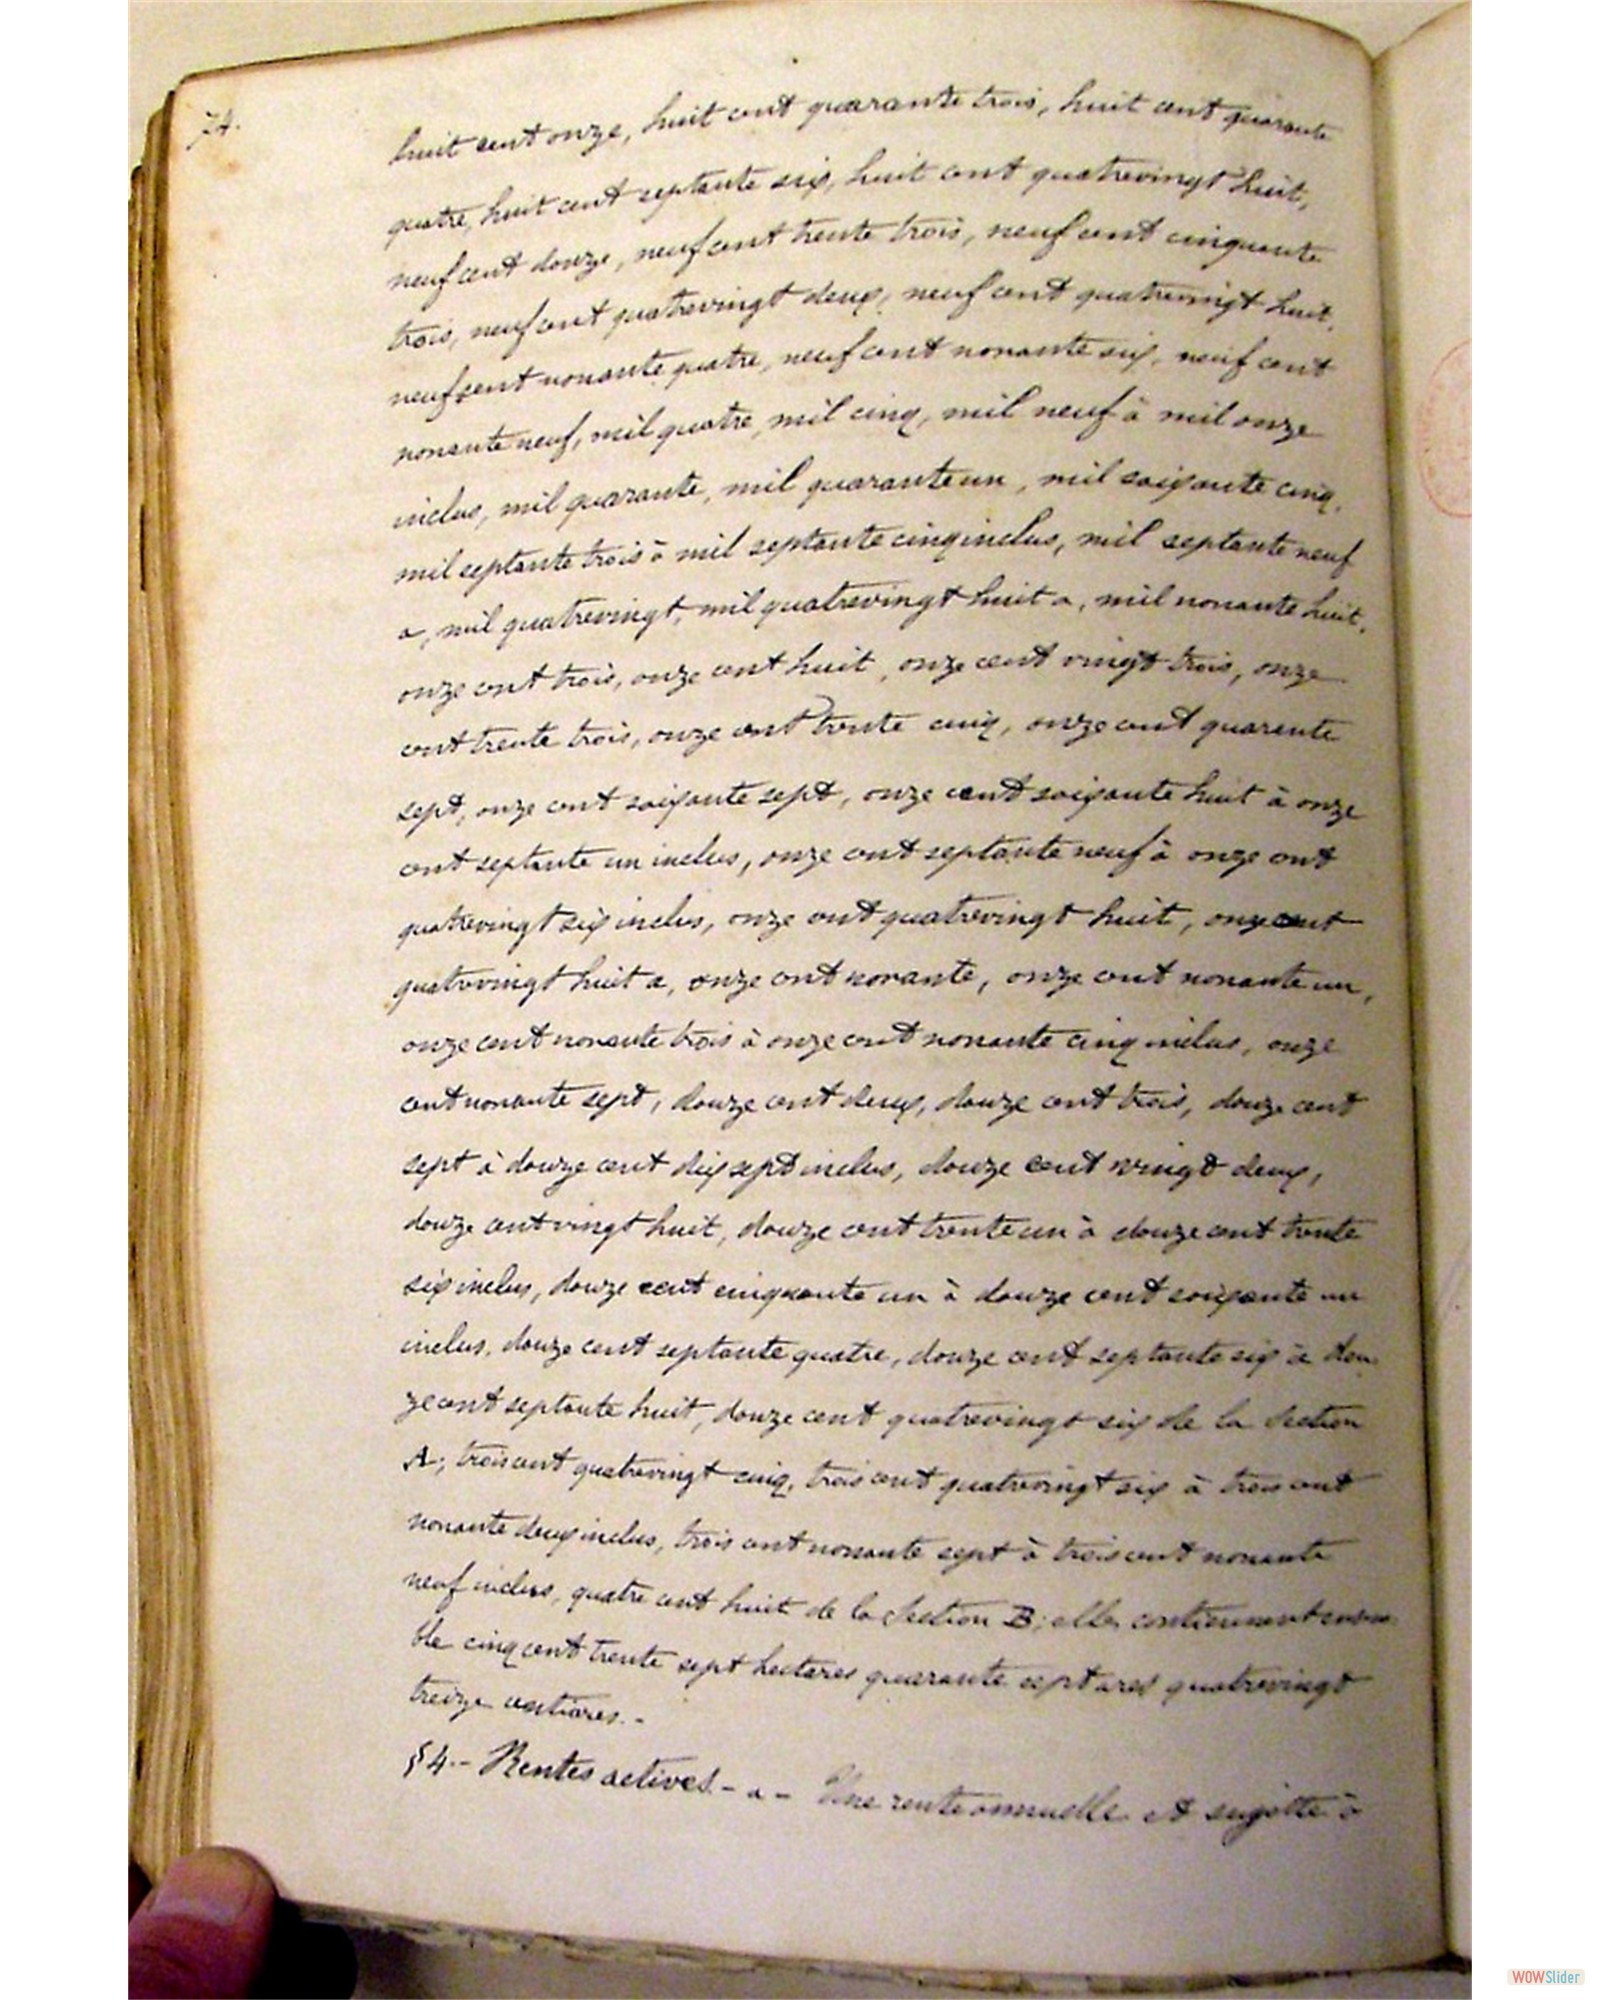 74.
huit cent onze, huit cent quarante trois, huit cent quarante
quatre, huit cent septante six, huit cent quatrevingt huit,
neuf cent douze, neuf cent trente trois, neuf cent cinquante
trois, neuf cent quatrevingt deux, neuf cent quatrevingt huit,
neuf cent nonante quatre, neuf cent nonante six, neuf cent
nonante neuf, mil quatre, mil cinq, mil neuf à mil onze
inclus, mil quarante, mil quarante un, mil soixante cinq,
mil septante trois à mil septante cinq inclus, mil septante neuf
a, mil quatrevingt, mil quatrevingt huit a, mil nonante huit,
onze cent trois, onze cent huit, onze cent vingt trois, onze
cent trente trois, onze cent trente cinq, onze cent quarante
sept, onze cent soixante sept, onze cent soixante huit à onze
cent septante un inclus, onze cent septante neuf à onze cent
quatrevingt six inclus, onze cent quatrevingt huit, onze cent
quatrevingt huit a, onze cent nonante, onze cent nonante un,
onze cent nonante trois à onze cent nonante cinq inclus, onze
cent nonante sept, douze cent deux, douze cent trois, douze cent
sept à douze cent dix sept inclus, douze cent vingt deux,
douze cent vingt huit, douze cent trente un à douze cent trente
six inclus, douze cent cinquante un à douze cent soixante un
inclus, douze cent septante quatre, douze cent septante six à dou
ze cent septante huit, douze cent quatrevingt six de la Section
A; trois cent quatrevingt cinq, trois cent quatrevingt six à trois cent
nonante deux inclus, trois cent nonante sept à trois cent nonante
neuf inclus, quatre cent huit de la Section B; elles contiennent ensem
ble cinq cent trente sept hectares quarante sept ares quatrevingt
treize centiares.-
§4.- Rentes actives.- a - Une rente annuelle et sujette à
WOWSlider